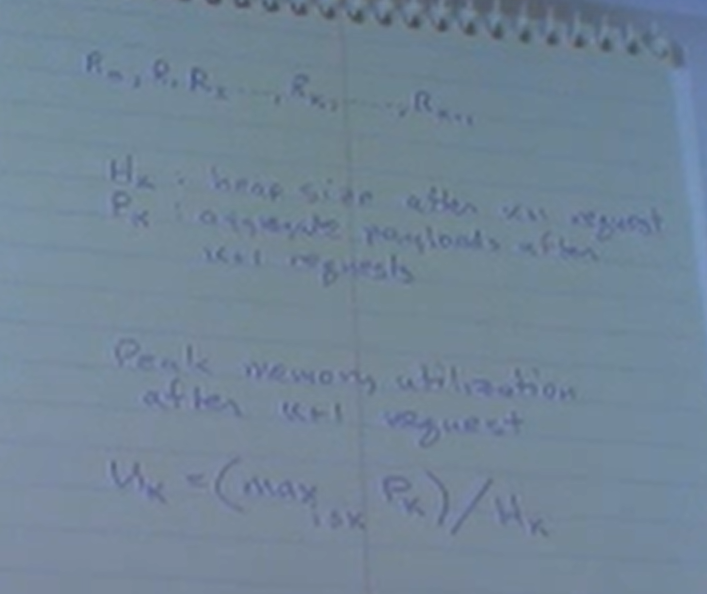 R₀, R₁ R₂ ...., Rₖ, ...., Rₙ₋₁
Hₖ : heap size after k+1 request
Pₖ : aggregate payloads after
k+1 requests
Peak memory utilization
after k+1 request
Uₖ = (max i≤k Pₖ) / Hₖ